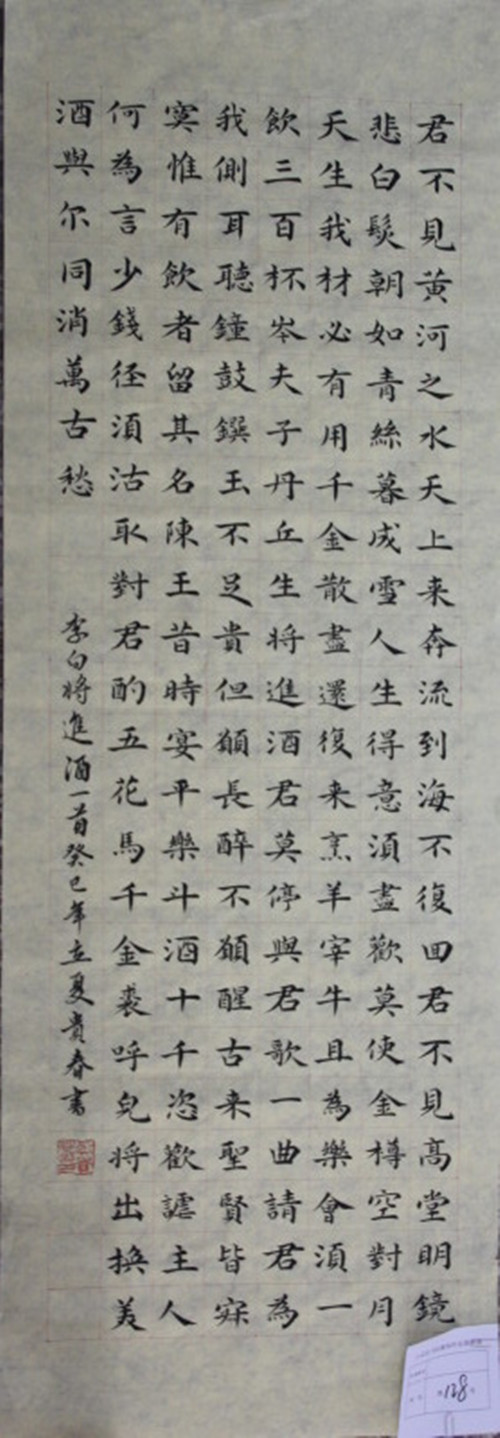 君不見黄河之水天上来奔流到海不復回君不見高堂明鏡
悲白髮朝如青絲暮成雪人生得意須盡歡莫使金樽空對月
天生我材必有用千金散盡還復来烹羊宰牛且為樂會須一
飲三百杯岑夫子丹丘生将進酒君莫停與君歌一曲請君為
我側耳聽鐘鼓饌玉不足貴但願長醉不願醒古来聖賢皆寂
寞惟有飲者留其名陳王昔時宴平樂斗酒十千恣歡謔主人
何為言少錢径須沽取對君酌五花馬千金裘呼兒将出換美
酒與尔同消萬古愁
李白将進酒一首癸巳年立夏貴春書
128